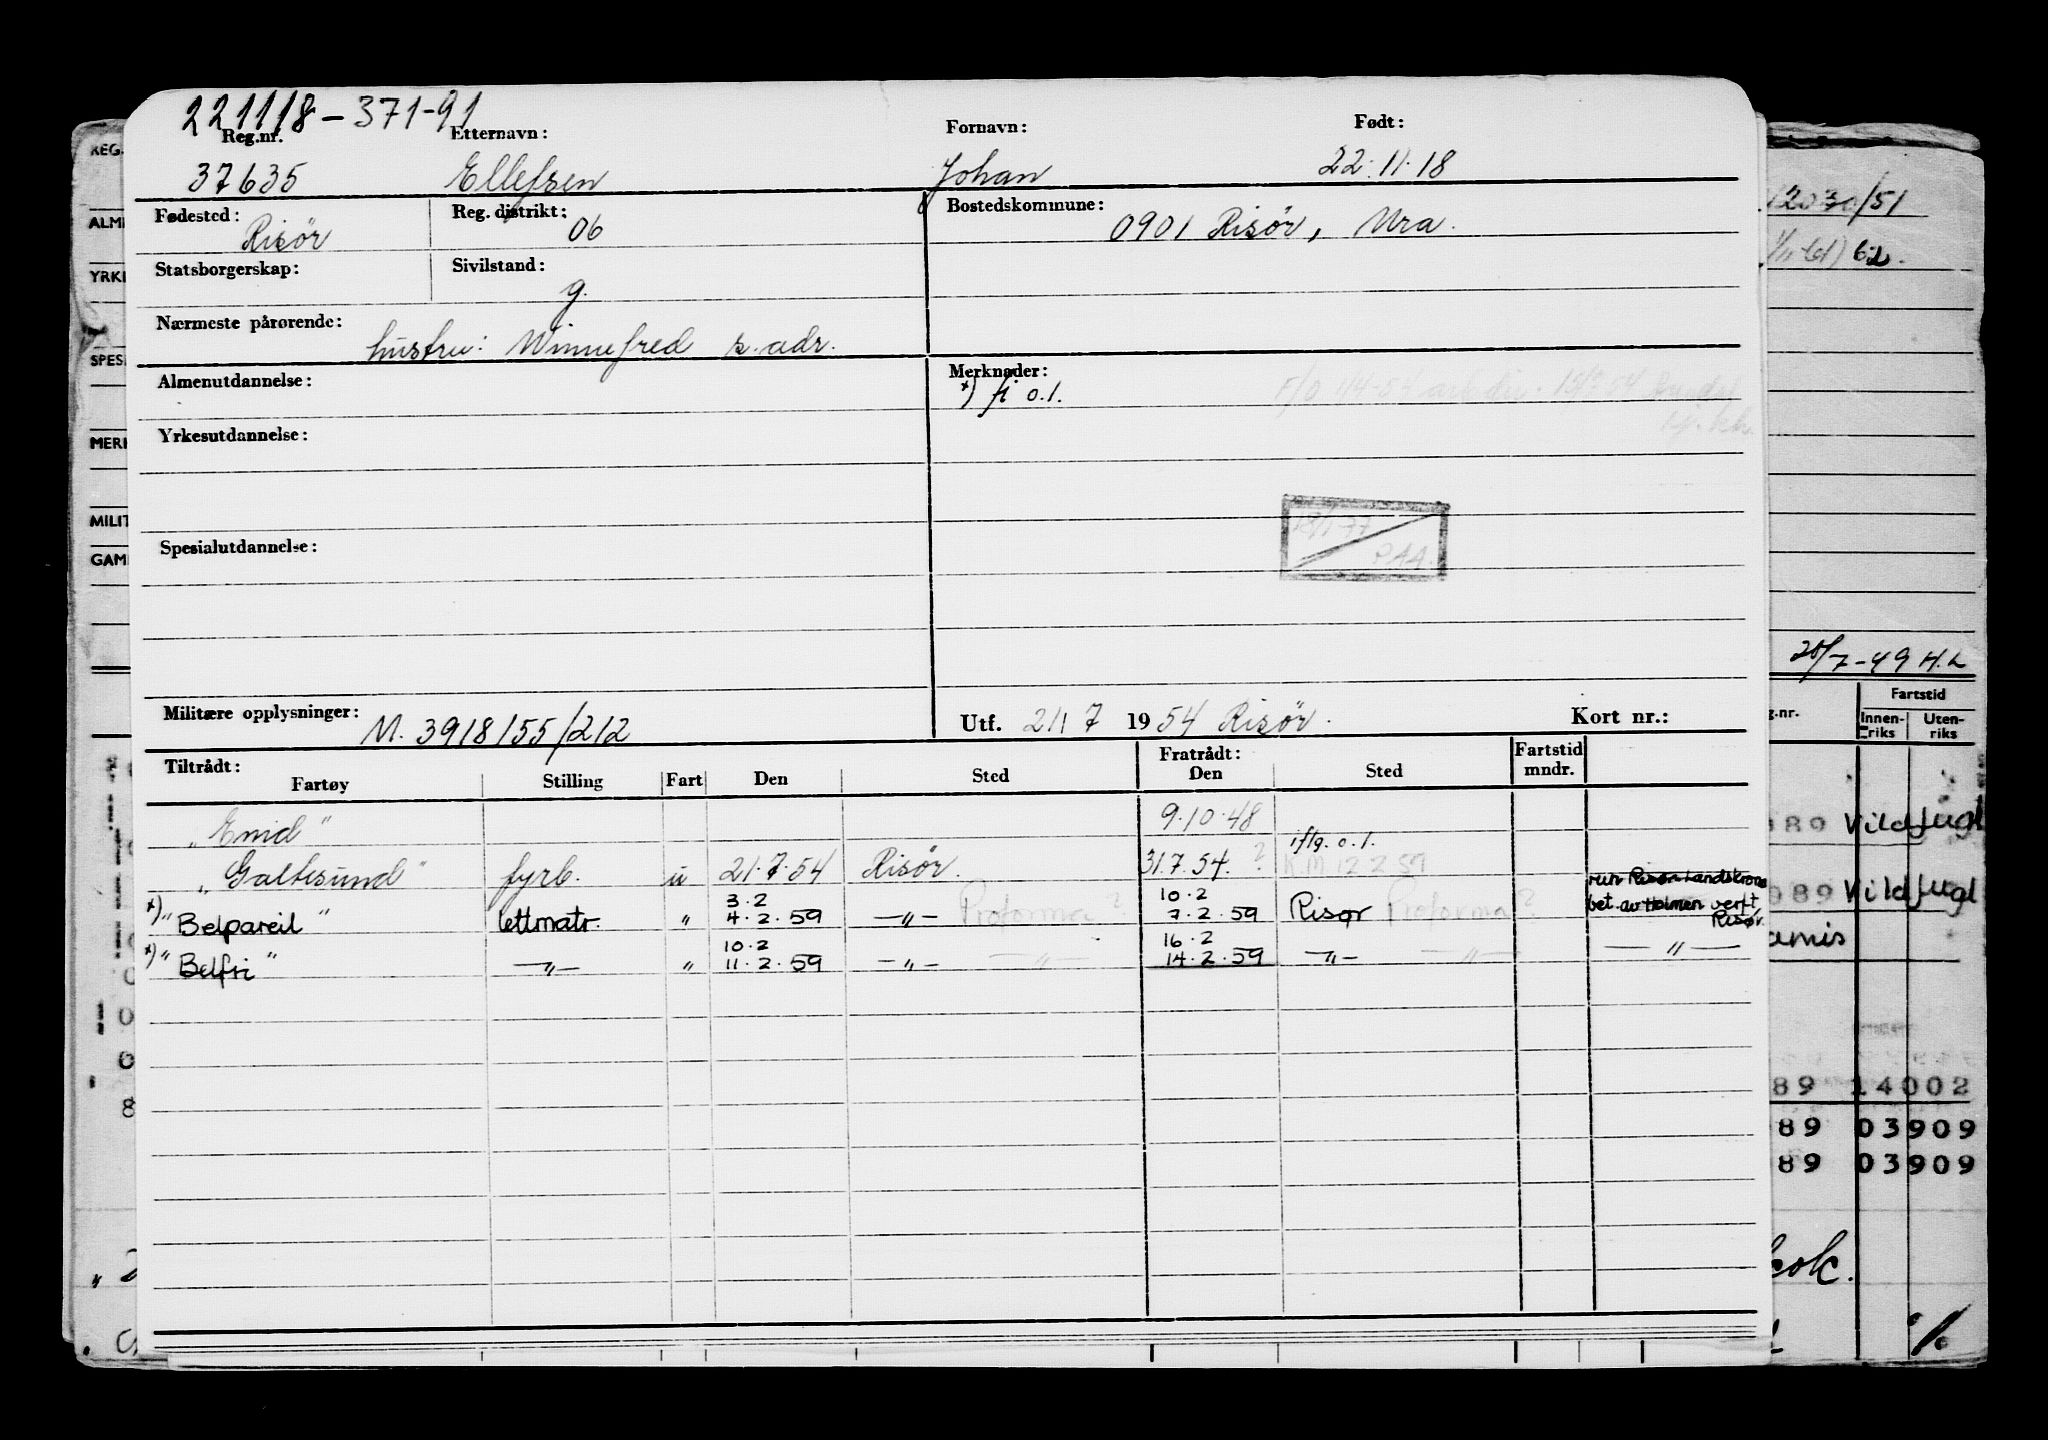 221118-371-91
Reg.nr. Etternavn: Fornavn: Født:
37635 Ellefsen Johan 22.11.18
Fødested: Reg. distrikt: Bostedskommune:
Risör 06 0901 Risör, Ura.
Statsborgerskap: Sivilstand:
g.
Nærmeste pårørende:
hustru: Winnefred s. adr.
Almenutdannelse: Merknader:
*) fi o.l.
Yrkesutdannelse:
Spesialutdannelse:
18/1-77
PAA.
Militære opplysninger: M. 3918/55/212 Utf. 21/7 1954 Risör. Kort nr.:
Tiltrådt: Fratrådt: Fartstid
Fartøy Stilling Fart Den Sted Den Sted mndr.
"Enid" 9.10.48
iflg. o.l.
"Galtesund" fyrb. u 21.7.54 Risör. 31.7.54. ? K.M 12.2.59
3.2 10.2 run Risør Landskrona
*) "Belpareil" lettmatr. " 4.2.59 —"— Proforma? 7.2.59 Risør Proforma? bet. av Holmen verft,
Risør.
10.2 16.2
*) "Belfri" —"— " 11.2.59 —"— —"— 14.2.59 —"— —"— —"—
REG.
ALM
YRK
SPES
MER
MILIT
GAM
2030/51
62.
20/7-49 H.L
g.nr. Fartstid
Innen-riks Uten-riks
089 Vildfugl
089 Vildfugl
amis
89 14002
89 03909
89 03909
kok.